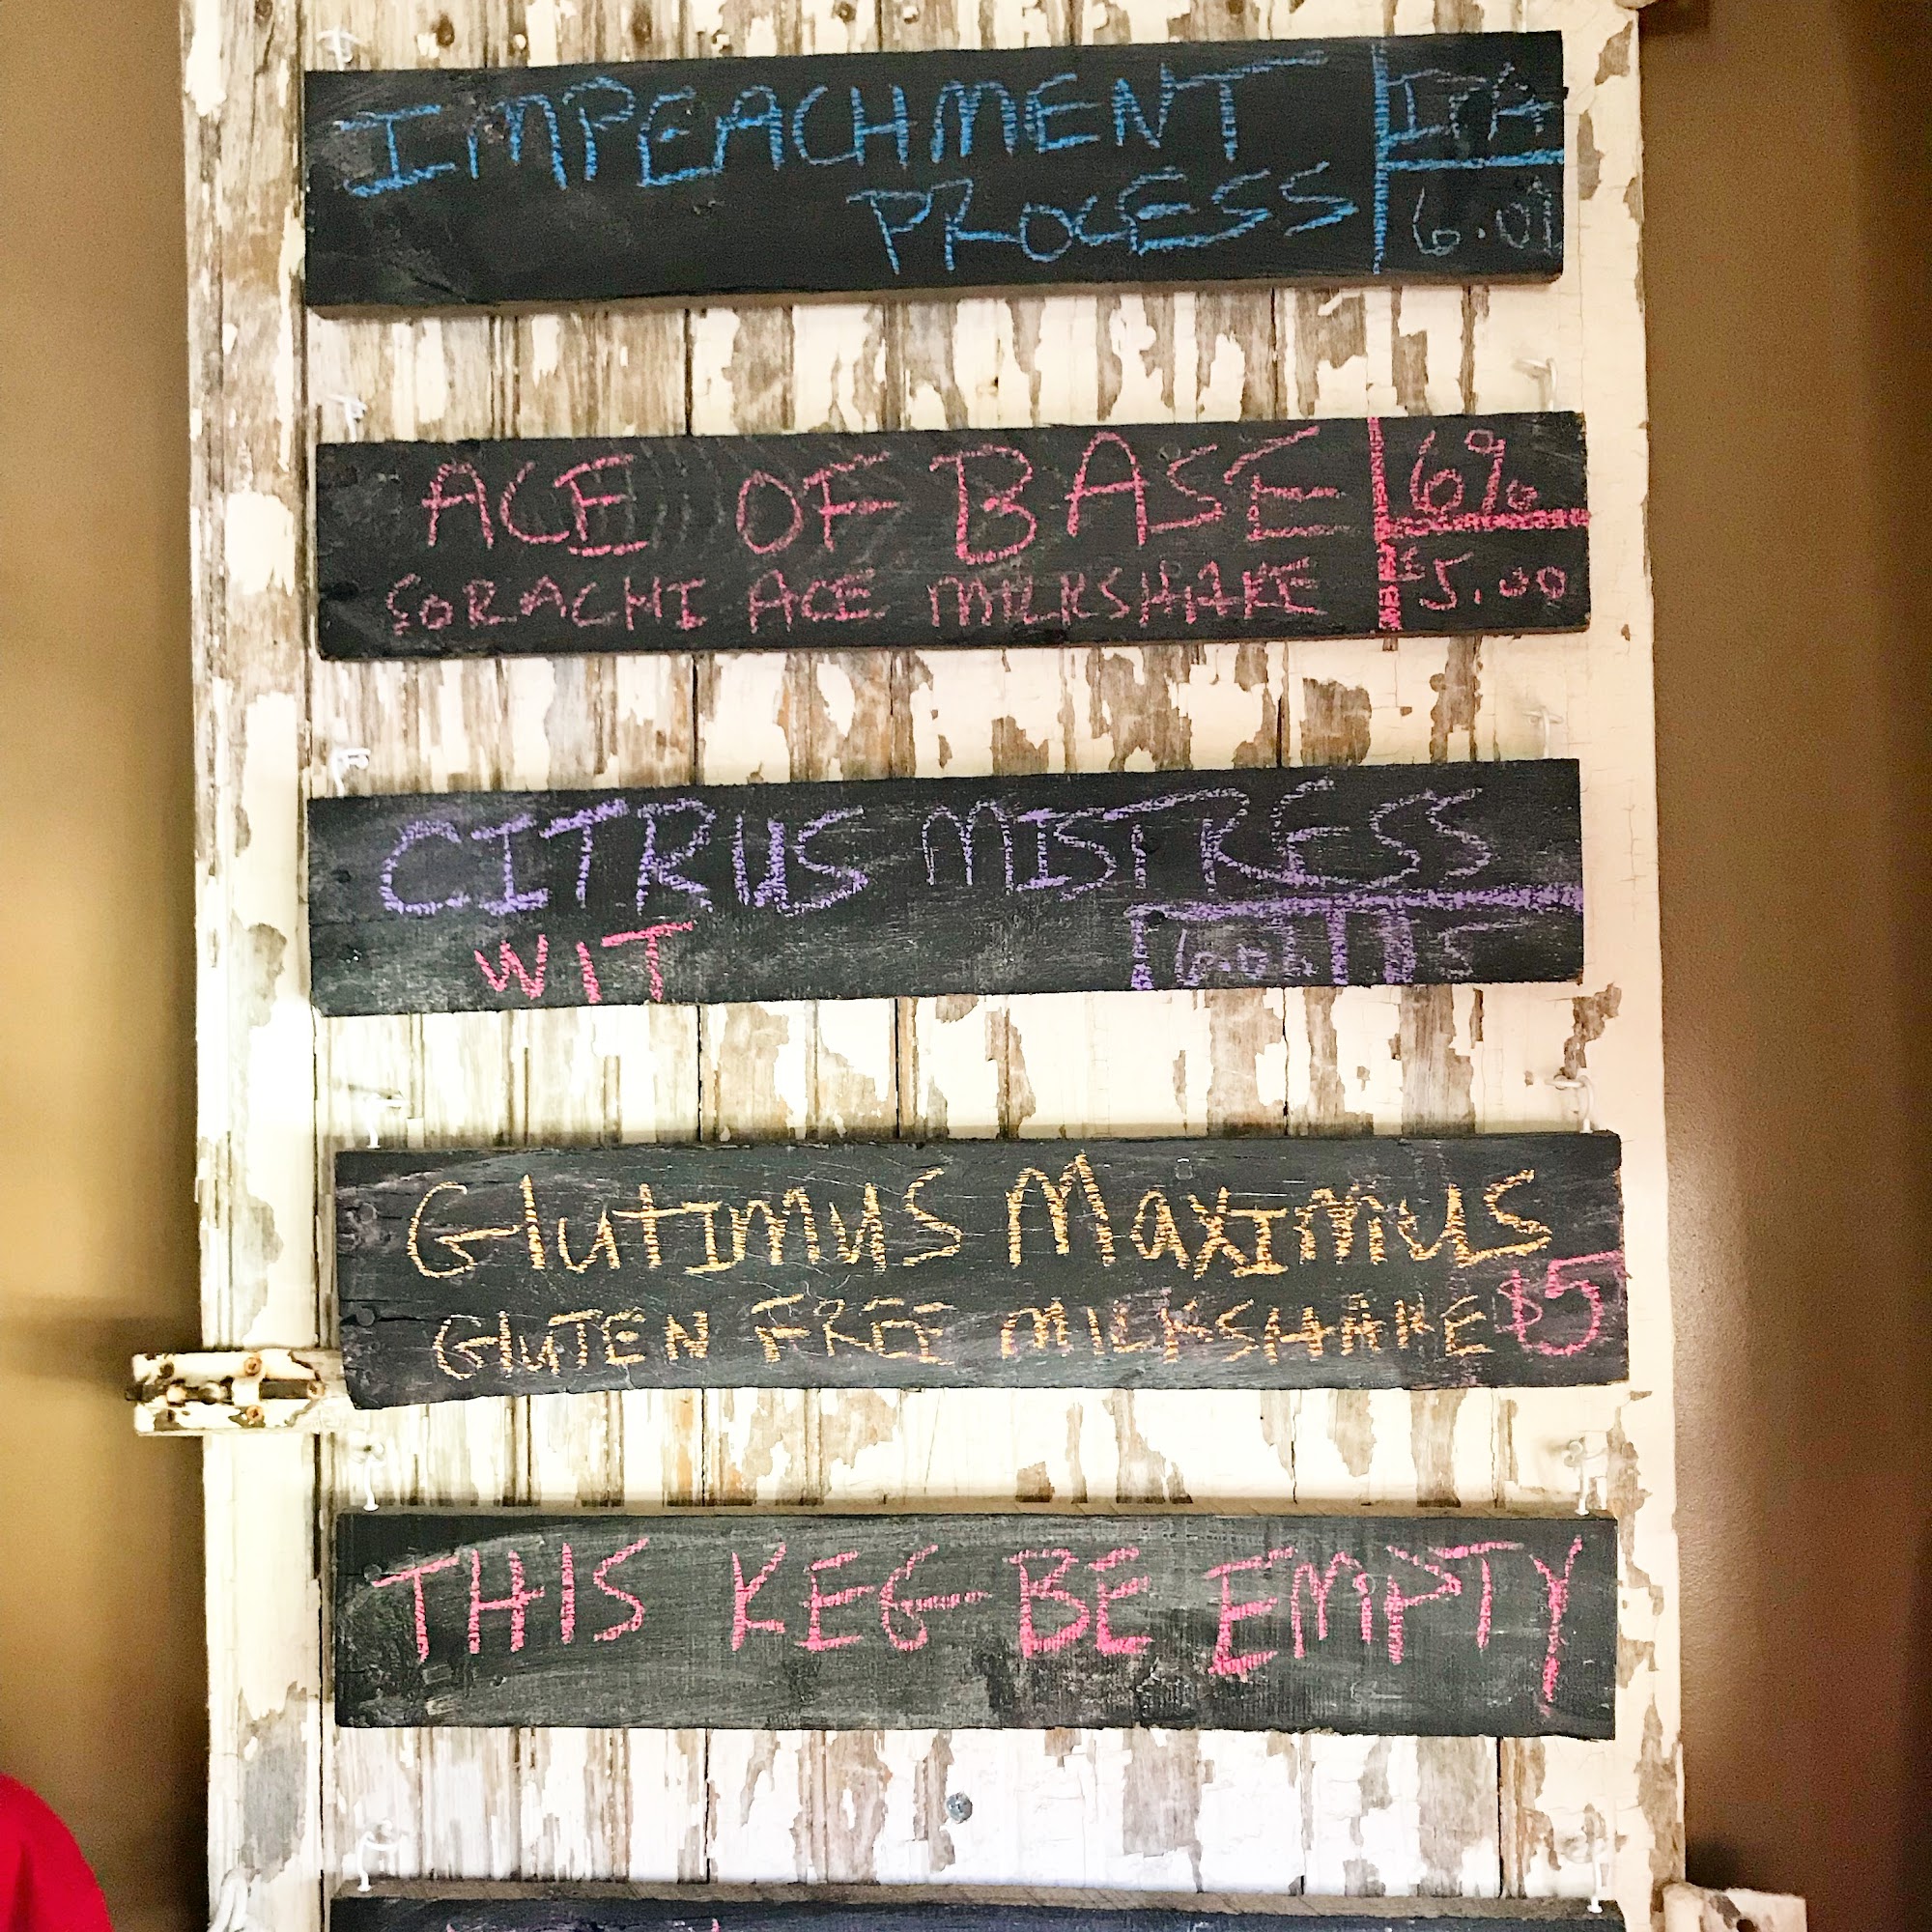 IMPEACHMENT
PROCESS
IPA
6.01
ACE OF BASE
SORACHI ACE MILKSHAKE
6%
$5.00
CITRUS MISTRESS
WIT
Glutimus Maximus
GluTEN FREE MILKSHAKE $5
THIS KEG BE EMPTY